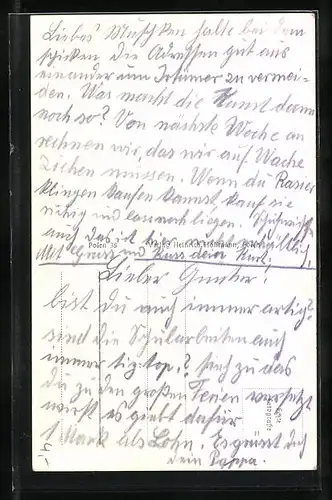 Liebes Muschken halte bei dem
schicken, die Adressen gut aus
einander um Irtümer zu vermei-
den. Was macht die Kunst denn
noch so? Von nächste Woche an
rechnen wir, das wir auf Wache
ziehen müssen. Wenn du Rasier
klingen kaufen kannst, kauf sie
ruhig und
auch das ist hier
Polen 38 Verlag Heinrich Hoffmann,
Mit Gruss und Kuss dein Kurt.
Lieber Gunter!
bist du auch immer artig?
sind die Schularbeiten auch
immer tip top? sieh zu das
du zu den großen Ferien versetzt
wirst es giebt dafür
1 Mark als Lohn. Es grüsst dich
dein Pappa.